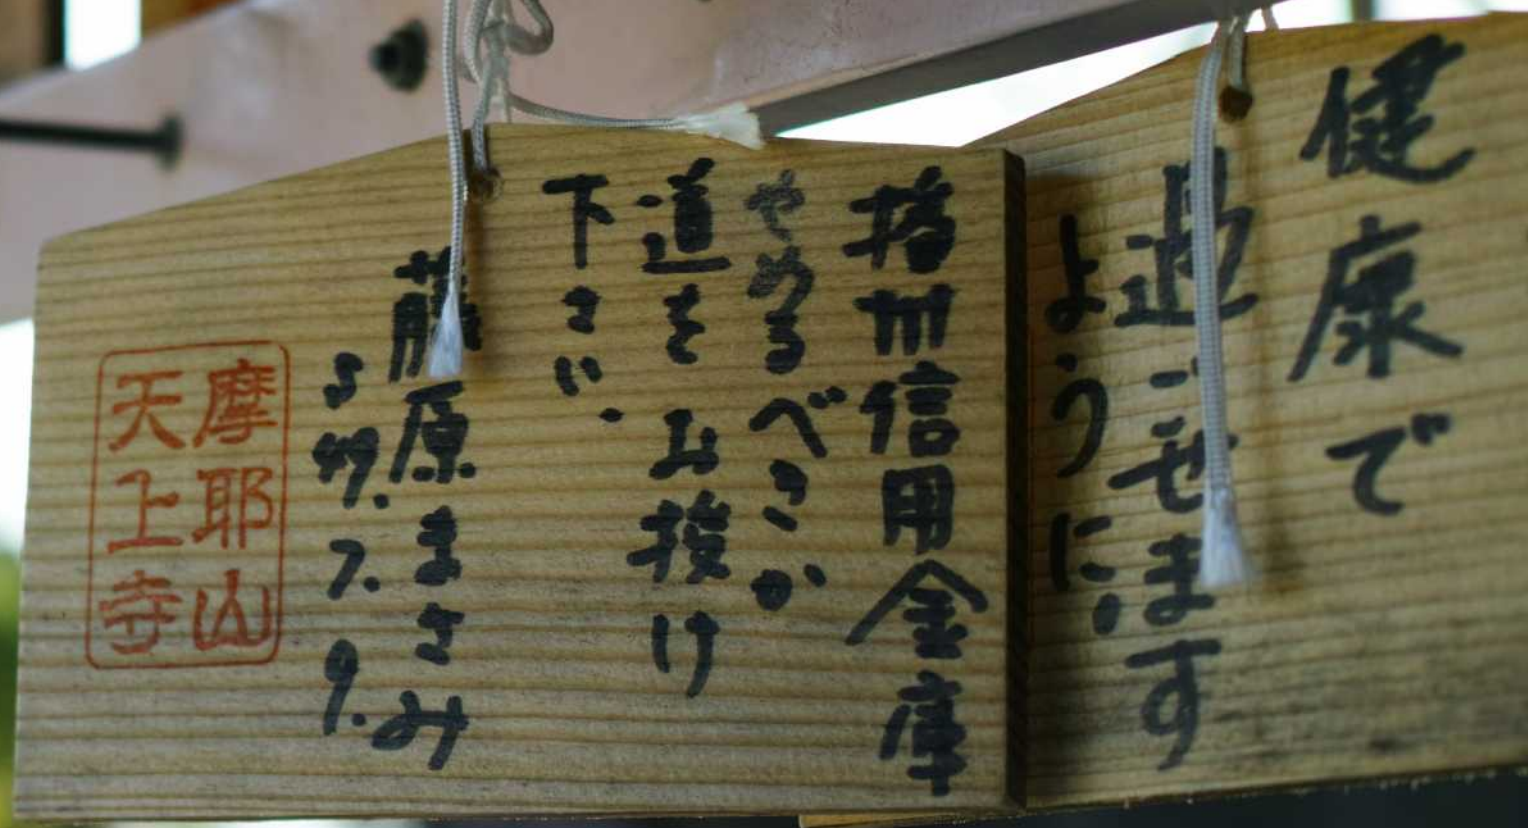 健康で
過ごせます
ように
播州信用金庫
やめるべこか
道をお授け
下さい.
藤原まさみ
S47.7.9.
摩耶山
天上寺